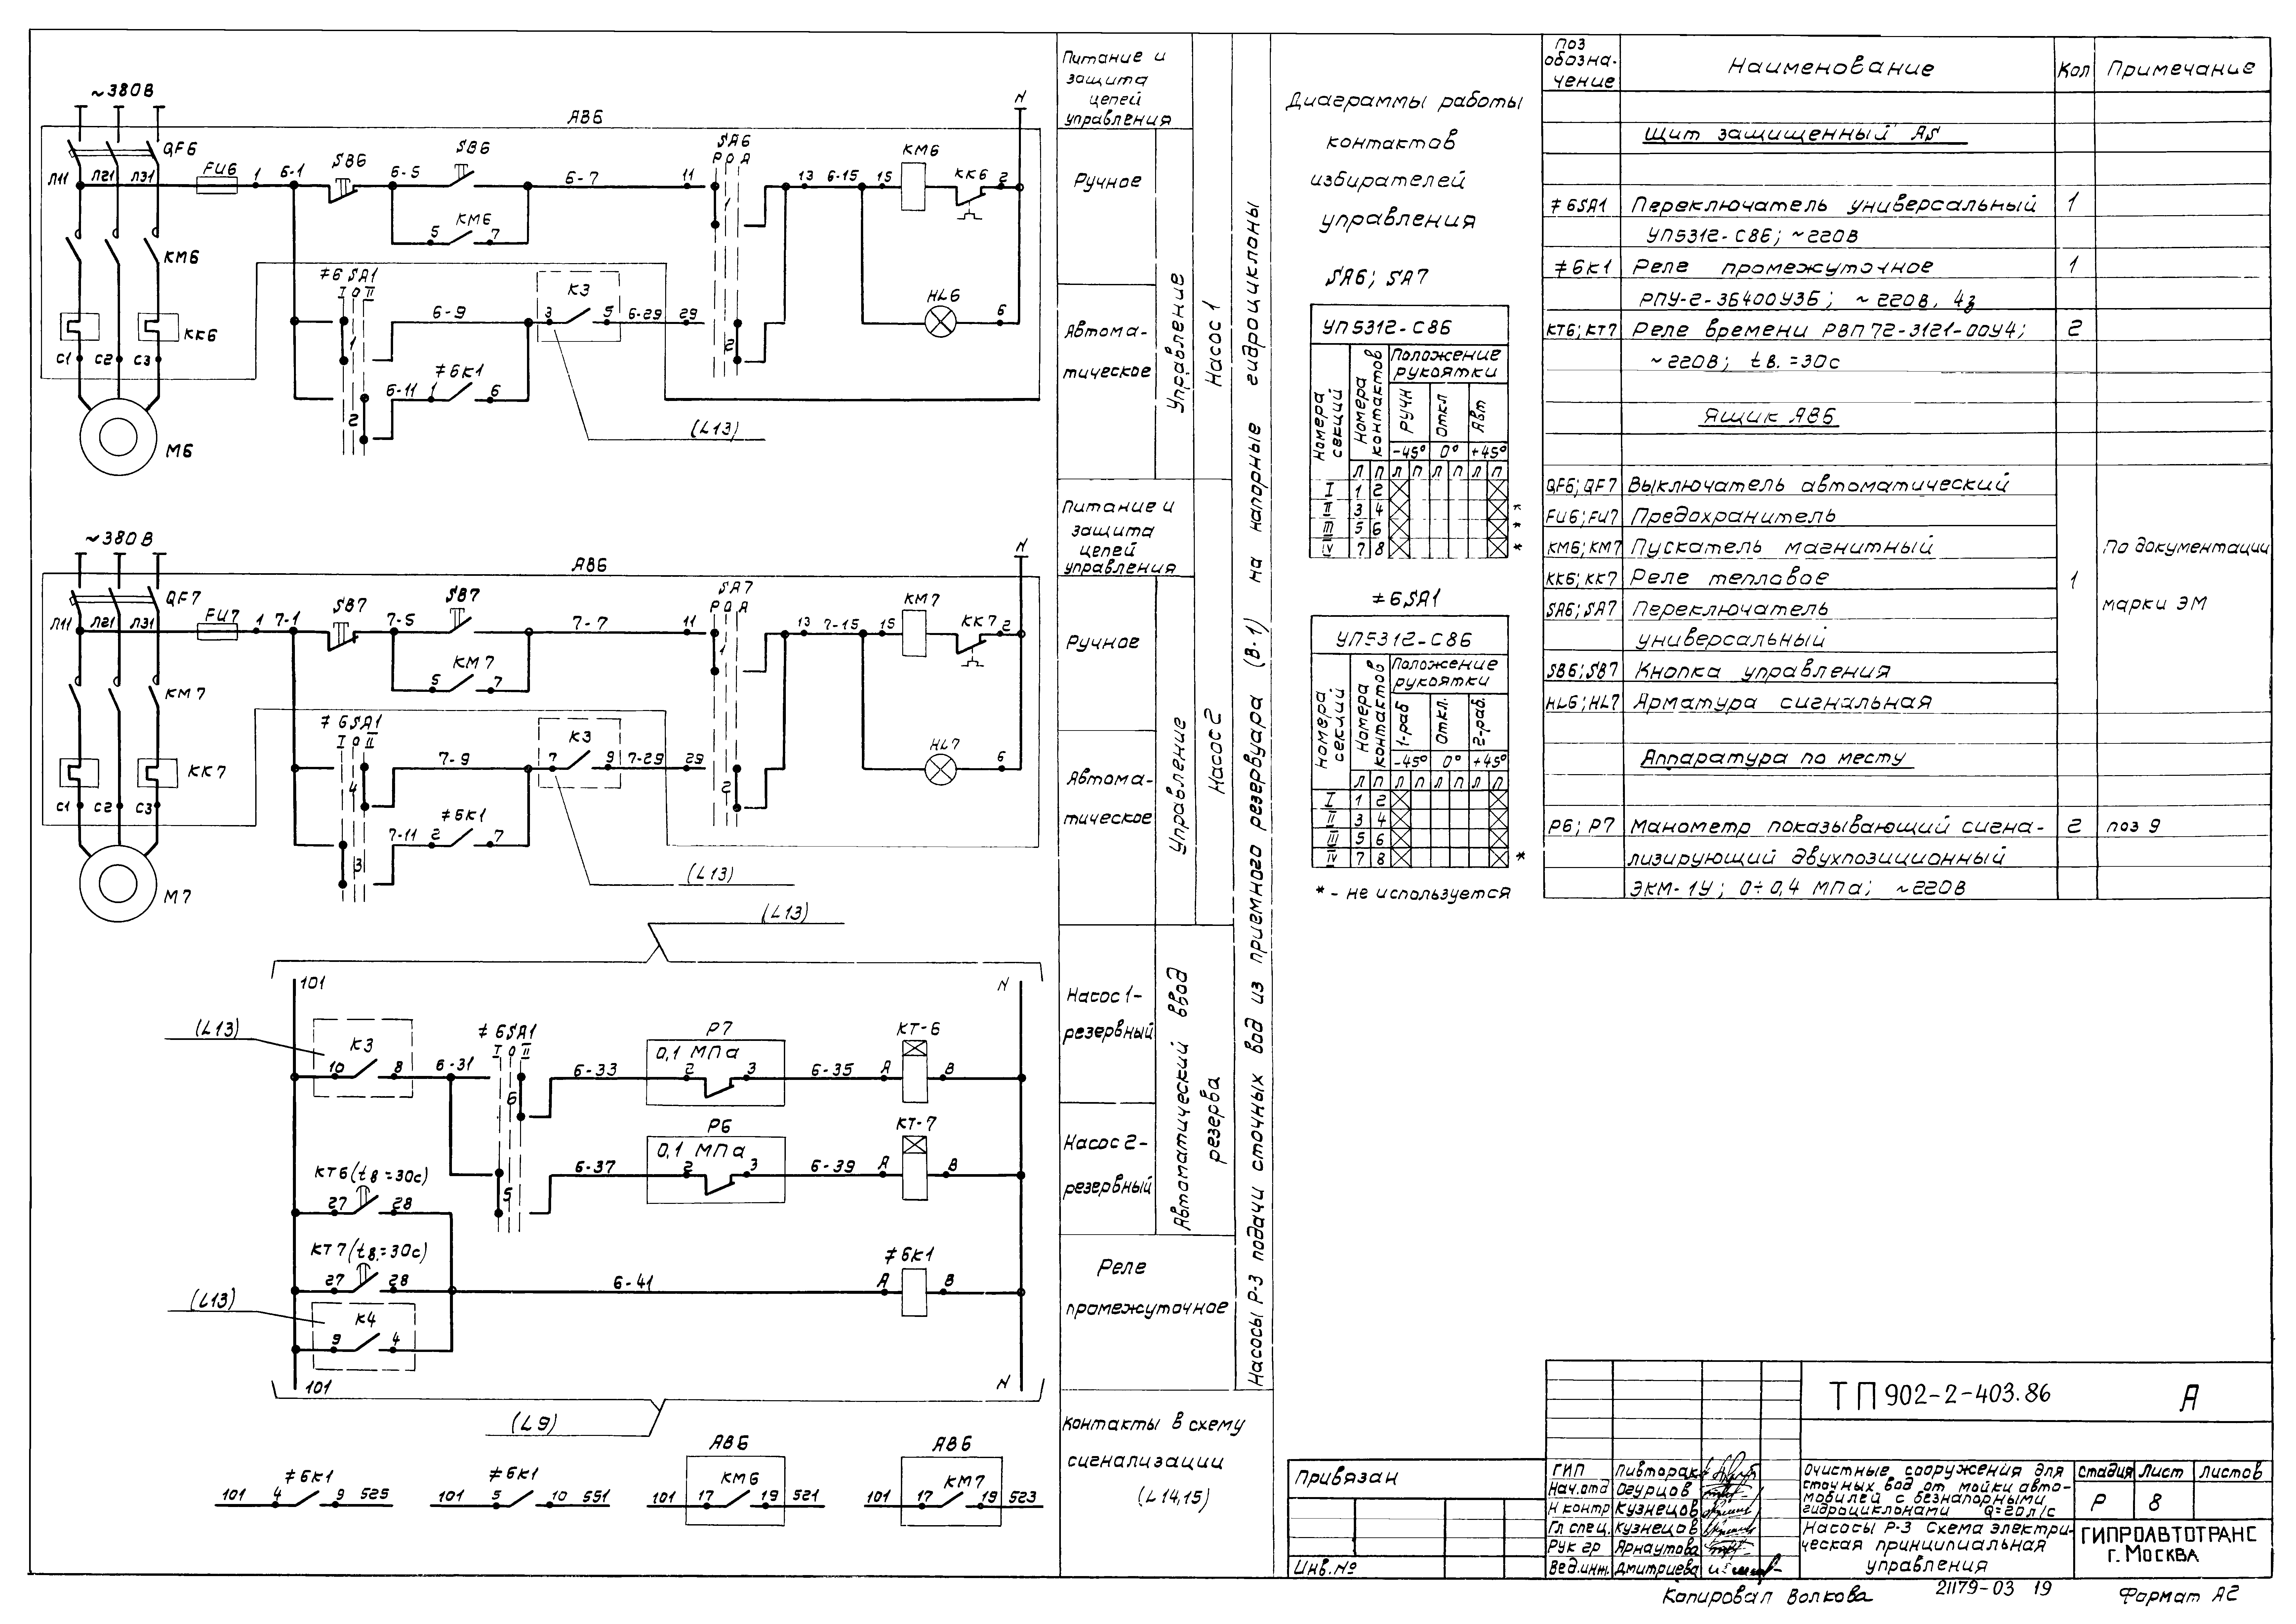 ~380В
ЯВ6
N
QF6
Л11 Л21 Л31
FU6
1 6-1
SB6
6-5
SB6
6-7
11
SA6
Р О А
1
13 6-15 15
КМ6
КК6 2
КМ6
5 7
КМ6
≠6 SA1
I О II
1
6-9
К3
3 5
6-29 29
2
HL6
6
КК6
С1 С2 С3
2
6-11 1
≠6К1
6
(L13)
М6
~380В
ЯВ6
N
QF7
Л11 Л21 Л31
FU7
1 7-1
SB7
7-5
SB7
7-7
11
SA7
Р О А
1
13 7-15 15
КМ7
КК7 2
КМ7
5 7
КМ7
≠6SA1
I О II
4
7-9
К3
7 9
7-29 29
2
HL7
6
КК7
С1 С2 С3
3
7-11 2
≠6К1
7
(L13)
М7
(L13)
101
N
(L13)
К3
10 8
6-31
≠6SA1
I О II
6
6-33
Р7
0,1 МПа
2 3
6-35
А
КТ-6
В
5
6-37
Р6
0,1 МПа
2 3
6-39
А
КТ-7
В
КТ6(tв=30с)
27 28
КТ7(tв.=30с)
27 28
6-41
А
≠6К1
В
(L13)
К4
9 4
101
N
(L9)
101 4
≠6К1
9 525
101 5
≠6К1
10 551
ЯВ6
101 17
КМ6
19 521
ЯВ6
101 17
КМ7
19 523
Питание и
защита
цепей
управления
Ручное
Автома-
тическое
Управление
Насос 1
Питание и
защита
цепей
управления
Ручное
Автома-
тическое
Управление
Насос 2
Насос 1-
резервный
Насос 2-
резервный
Автоматический ввод
резерва
Реле
промежуточное
Насосы Р-3 подачи сточных вод из приемного резервуара (В-1) на напорные гидроциклоны
Контакты в схему
сигнализации
(L14,15)
Диаграммы работы
контактов
избирателей
управления
SA6; SA7
УП5312-С86
Номера секций
Номера контактов
Положение
рукоятки
РУЧН
Откл
Авт
-45° 0° +45°
Л П Л П Л П Л П
I 1 2
II 3 4 *
III 5 6 *
IV 7 8 *
≠6SA1
УП5312-С86
Номера секций
Номера контактов
Положение
рукоятки
1-раб
Откл.
2-раб.
-45° 0° +45°
Л П Л П Л П Л П
I 1 2
II 3 4
III 5 6
IV 7 8 *
* - не используется
Поз
обозна-
чение
Наименование
Кол
Примечание
Щит защищенный А5
≠6SA1 Переключатель универсальный 1
УП5312-С86; ~220В
≠6К1 Реле промежуточное 1
РПУ-2-36400У3Б; ~220В, 4з
КТ6; КТ7 Реле времени РВП72-3121-00У4; 2
~220В; tв.=30с
Ящик ЯВ6
QF6; QF7 Выключатель автоматический
FU6; FU7 Предохранитель
КМ6; КМ7 Пускатель магнитный По документации
КК6; КК7 Реле тепловое 1
SA6; SA7 Переключатель марки ЭМ
универсальный
SB6; SB7 Кнопка управления
HL6; HL7 Арматура сигнальная
Аппаратура по месту
Р6; Р7 Манометр показывающий сигна- 2 поз 9
лизирующий двухпозиционный
ЭКМ-1У; 0÷0,4 МПа; ~220В
ТП 902-2-403.86 А
Привязан
Инв.№
ГИП Пивторак
Нач.отд Огурцов
Н контр Кузнецов
Гл спец. Кузнецов
Рук гр Арнаутова
Вед.инж. Дмитриева
Очистные сооружения для
сточных вод от мойки авто-
мобилей с безнапорными
гидроциклонами Q=20л/с
стадия Лист Листов
Р 8
Насосы Р-3 Схема электри-
ческая принципиальная
управления
ГИПРОАВТОТРАНС
г. Москва
Копировал Волкова
21179-03 19
Формат А2